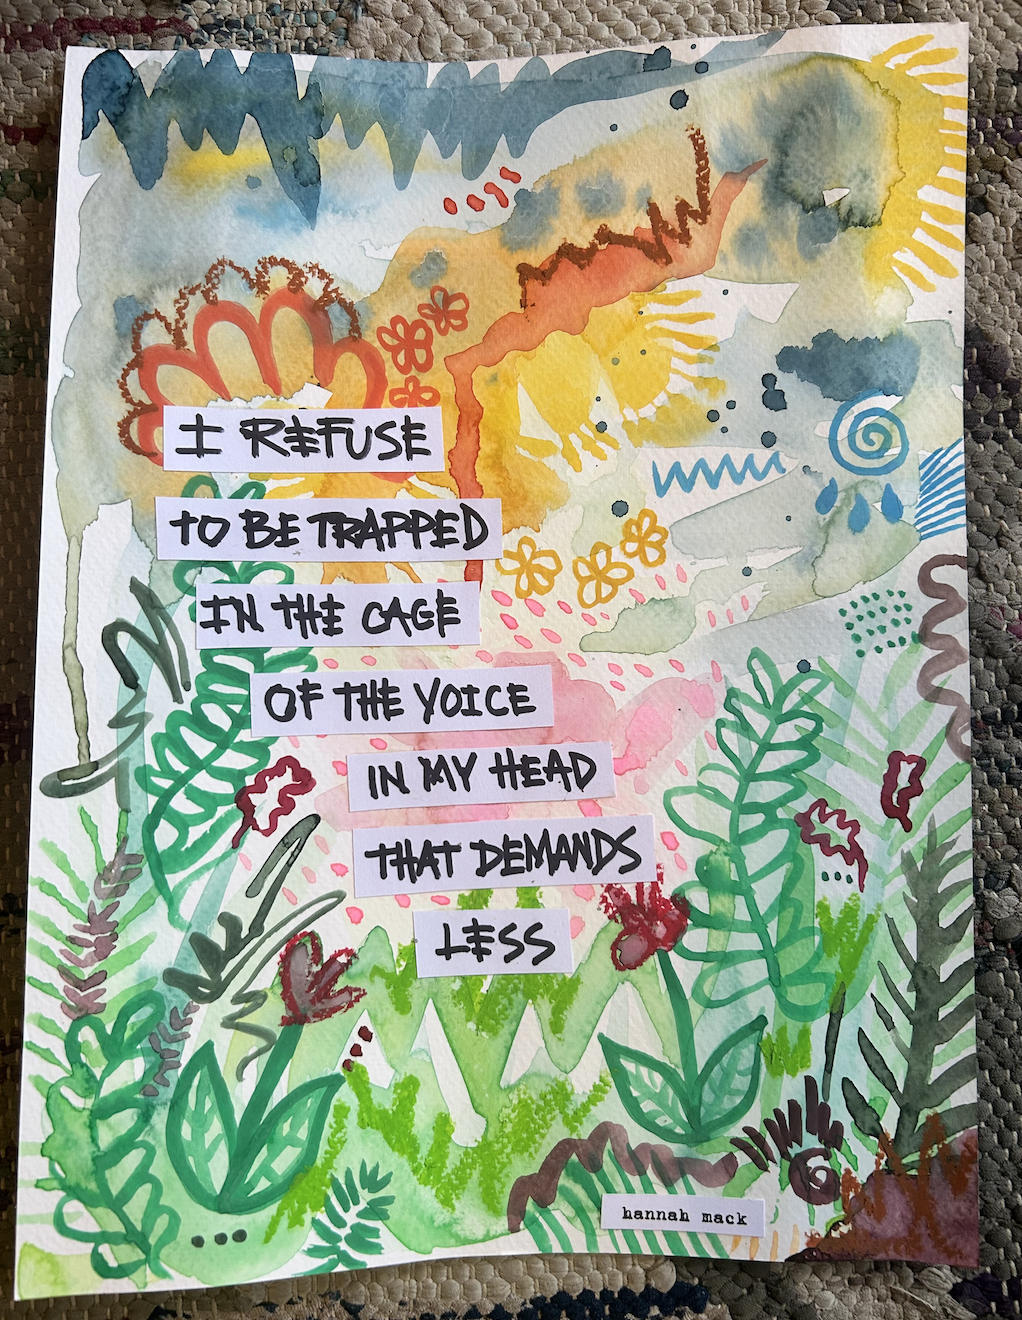 I REFUSE
TO BE TRAPPED
IN THE CAGE
OF THE VOICE
IN MY HEAD
THAT DEMANDS
LESS
hannah mack